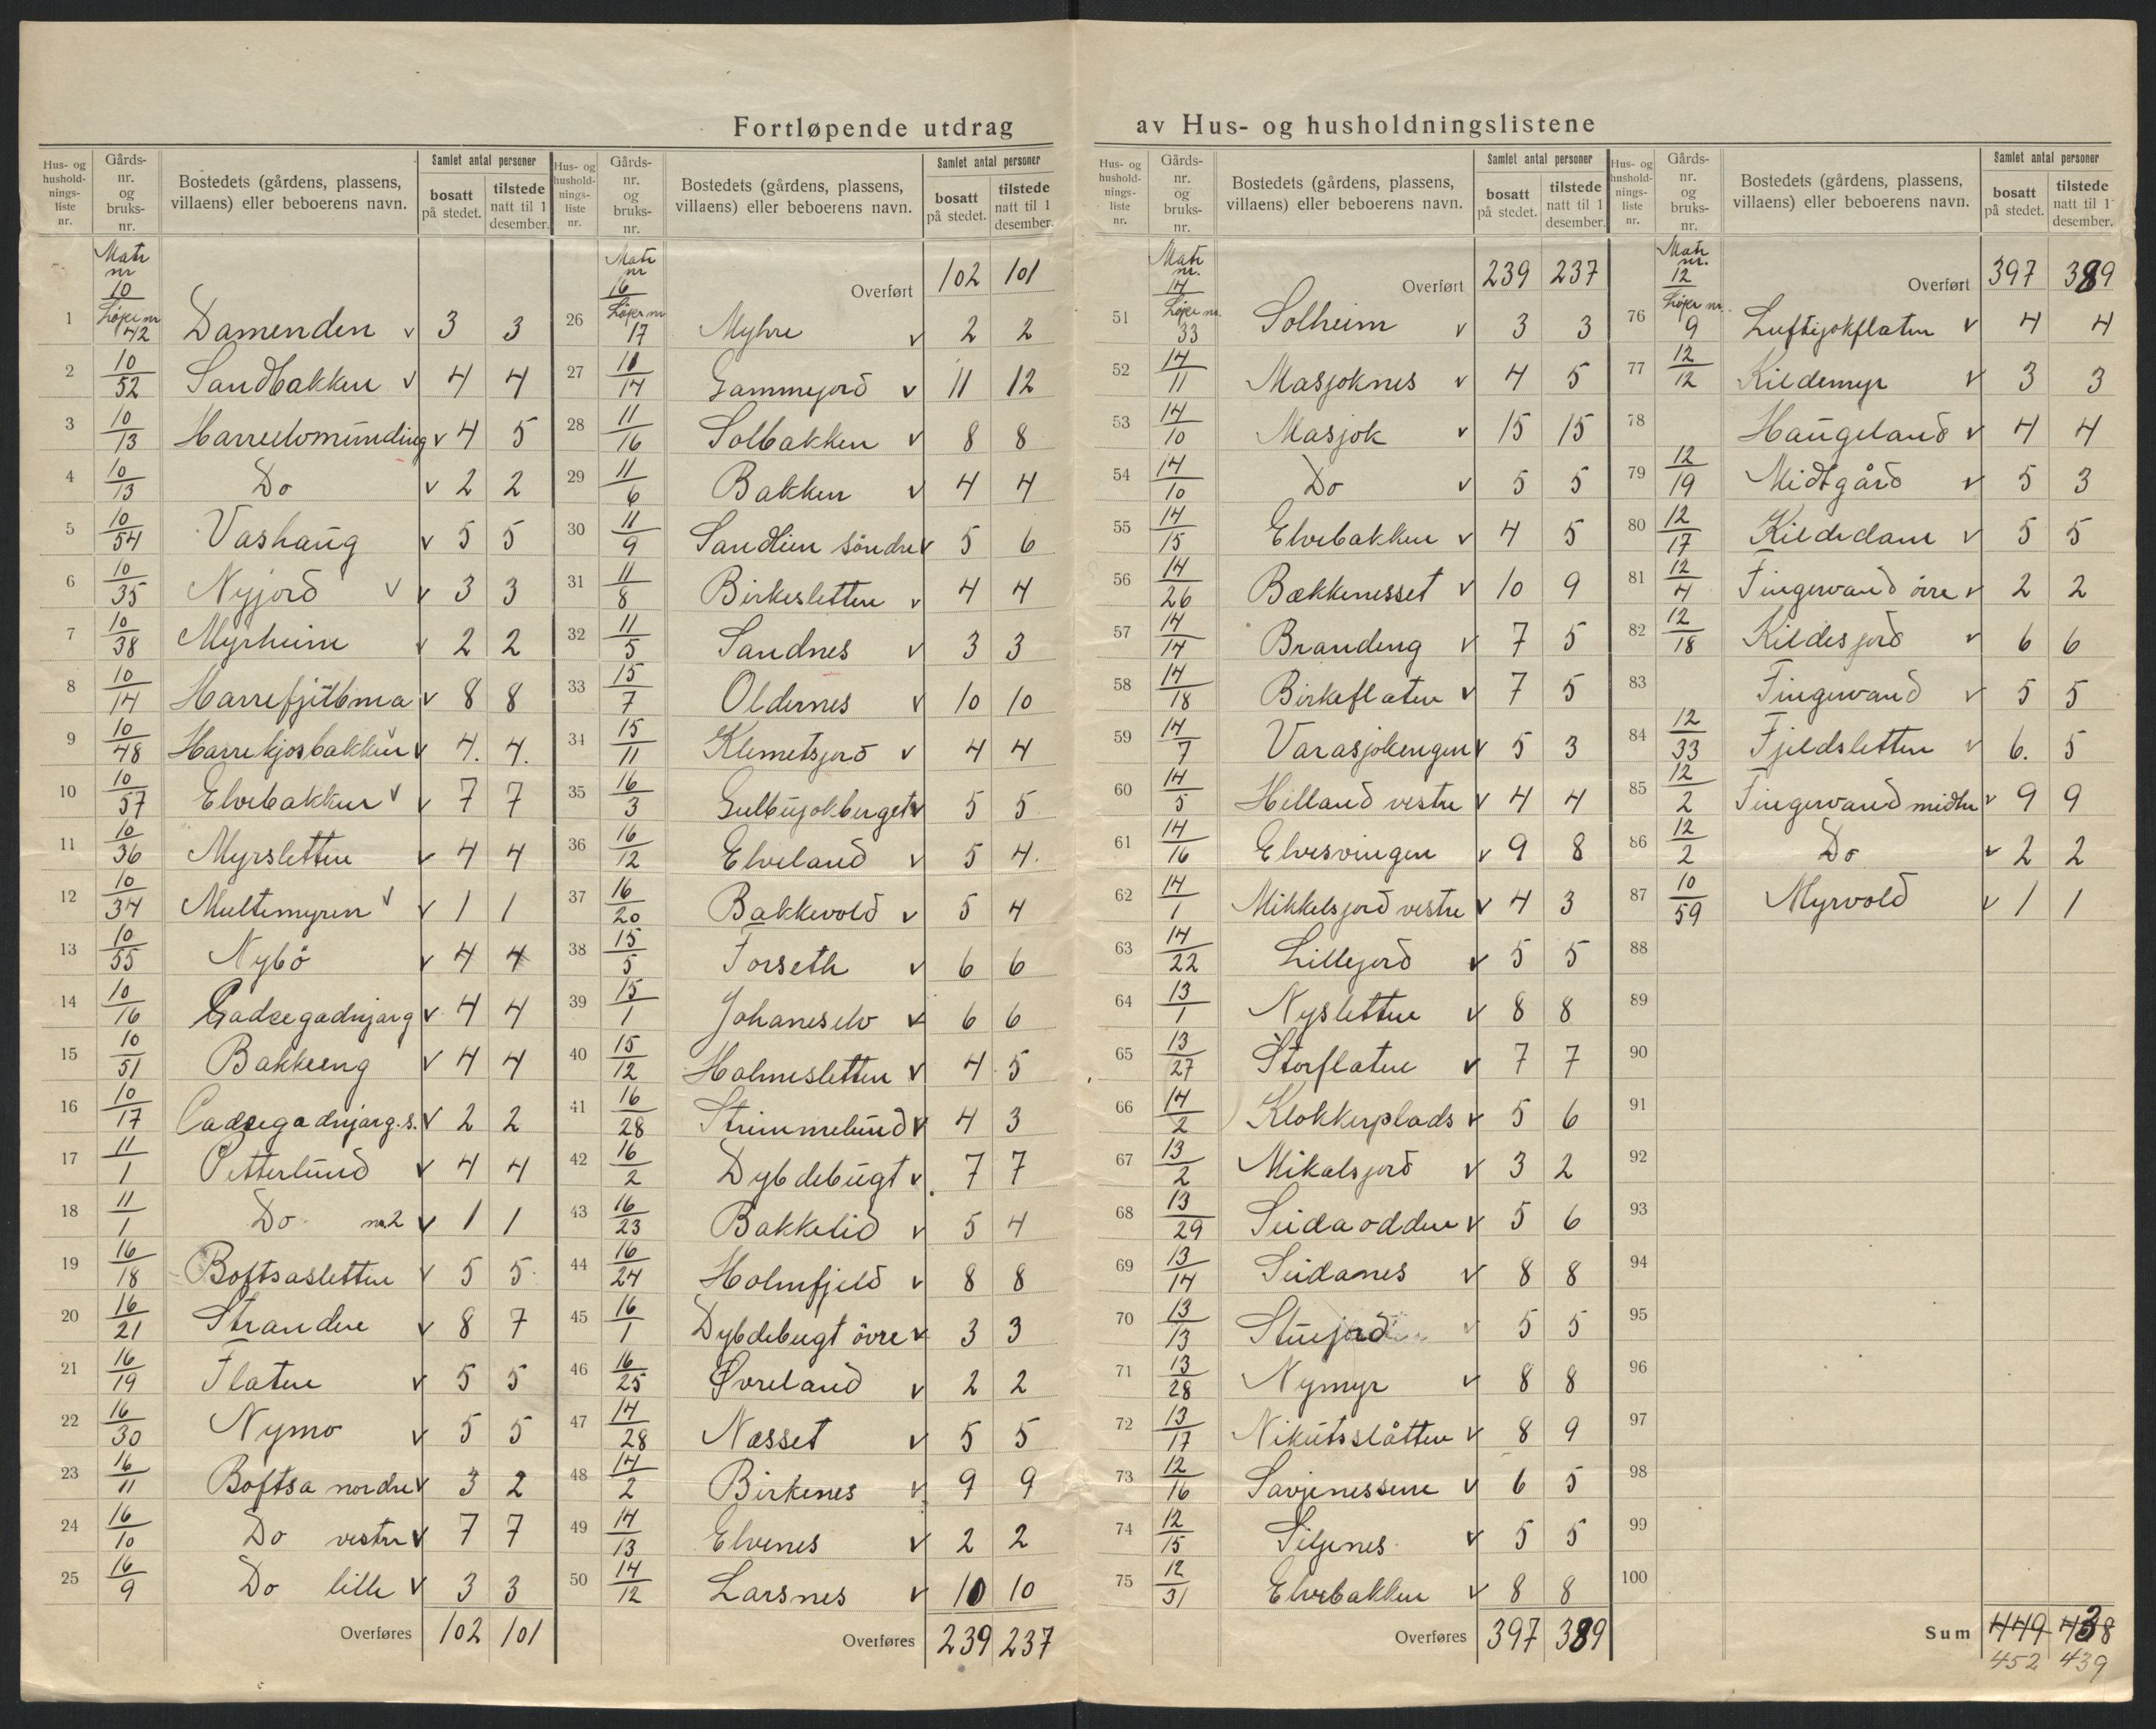 Fortløpende utdrag av Hus- og husholdningslistene
Hus- og husholdnings-liste nr. | Gårds-nr. og bruks-nr. | Bostedets (gårdens, plassens, villaens) eller beboerens navn. | Samlet antal personer | bosatt på stedet. | tilstede natt til 1 desember.
Matr nr 10 Løpe nr
1 10/42 Damenden v 3 3
2 10/52 Sandbakken v 4 4
3 10/13 Harrelvmunding v 4 5
4 10/13 Do v 2 2
5 10/54 Vashaug v 5 5
6 10/35 Nyjord v v 3 3
7 10/38 Myrheim v 2 2
8 10/14 Harrefjitbma v 8 8
9 10/48 Harrekjosbakken v 4. 4.
10 10/57 Elvebakken v v 7 7
11 10/36 Myrsletten v 4 4
12 10/34 Multemyren v v 1 1
13 10/55 Nybö v 4 4
14 10/16 Gadcegadnjarg v 4 4
15 10/51 Bakkeeng v 4 4
16 10/17 Cadcegadnjarg. s. v 2 2
17 11/1 Petterlund v 4 4
18 11/1 Do nr 2 v 1 1
19 16/18 Boftsasletten v 5 5
20 16/21 Stranden v 8 7
21 16/19 Flaten v 5 5
22 16/30 Nymo v 5 5
23 16/11 Boftsa nordre v 3 2
24 16/10 Do vestre v 7 7
25 16/9 Do lille v 3 3
Overføres 102 101
Hus- og husholdnings-liste nr. | Gårds-nr. og bruks-nr. | Bostedets (gårdens, plassens, villaens) eller beboerens navn. | Samlet antal personer | bosatt på stedet. | tilstede natt til 1 desember.
Matr nr 16 Løper nr
Overført 102 101
26 16/17 Myhre v 2 2
27 11/14 Gammejord v 11 12
28 11/16 Solbakken v 8 8
29 11/6 Bakken v 4 4
30 11/9 Sandlien söndre v 5 6
31 11/8 Birkesletten v 4 4
32 11/5 Sandnes v 3 3
33 15/7 Oldernes v 10 10
34 15/11 Klemetsjord v 4 4
35 16/3 Gulbujokberget v 5 5
36 16/12 Elveland v 5 4.
37 16/20 Bakkevold v 5 4
38 15/5 Forseth v 6 6
39 15/1 Johaneselv v 6 6
40 15/12 Holmesletten v 4 5
41 16/28 Strimmelund v 4 3
42 16/2 Dybdebugt v. 7 7
43 16/23 Bakkelid v 5 4
44 16/24 Holmfjeld v 8 8
45 16/1 Dybdebugt övre v 3 3
46 16/25 Øvreland v 2 2
47 14/28 Næsset v 5 5
48 14/2 Birkenes v 9 9
49 14/13 Elvenes v 2 2
50 14/12 Larsnes v 10 10
Overføres 239 237
Hus- og husholdnings-liste nr. | Gårds-nr. og bruks-nr. | Bostedets (gårdens, plassens, villaens) eller beboerens navn. | Samlet antal personer | bosatt på stedet. | tilstede natt til 1 desember.
Matr nr. 14 Løpe nr.
Overført 239 237
51 14/33 Solheim v 3 3
52 14/11 Masjoknes v 4 5
53 14/10 Masjok v 15 15
54 14/10 Do v 5 5
55 14/15 Elvebakken v 4 5
56 14/26 Bækkenesset v 10 9
57 14/14 Brandeng v 7 5
58 14/18 Birkeflaten v 7 5
59 14/7 Varasjokengen v 5 3
60 14/5 Hilland vestre v 4 4
61 14/16 Elvesvingen v 9 8
62 14/1 Mikkelsjord vestre v 4 3
63 14/22 Lillejord v 5 5
64 13/1 Nysletten v 8 8
65 13/27 Storflaten v 7 7
66 14/2 Klokkerplads v 5 6
67 13/2 Mikalsjord v 3 2
68 13/29 Seidaodden v 5 6
69 13/14 Seidanes v 8 8
70 13/13 Stuejord v 5 5
71 13/28 Nymyr v 8 8
72 13/17 Nikutsslåtten v 8 9
73 12/16 Savjenessene v 6 5
74 12/15 Siljenes v 5 5
75 12/31 Elvebakken v 8 8
Overføres 397 389
Hus- og husholdnings-liste nr. | Gårds-nr. og bruks-nr. | Bostedets (gårdens, plassens, villaens) eller beboerens navn. | Samlet antal personer | bosatt på stedet. | tilstede natt til 1 desember.
Matr nr. 12 Løpe nr.
Overført 397 389
76 12/9 Luftjokflaten v 4 4
77 12/12 Kildemyr v 3 3
78 Haugeland v 4 4
79 12/19 Midtgård v 5 3
80 12/17 Kildedam v 5 5
81 12/4 Fingervand övre v 2 2
82 12/18 Kildesjord v 6 6
83 Fingervand v 5 5
84 12/33 Fjeldsletten v 6. 5
85 12/2 Fingervand midtre v 9 9
86 12/2 Do v 2 2
87 10/59 Myrvold v 1 1
88
89
90
91
92
93
94
95
96
97
98
99
100
Sum 449 438
452 439